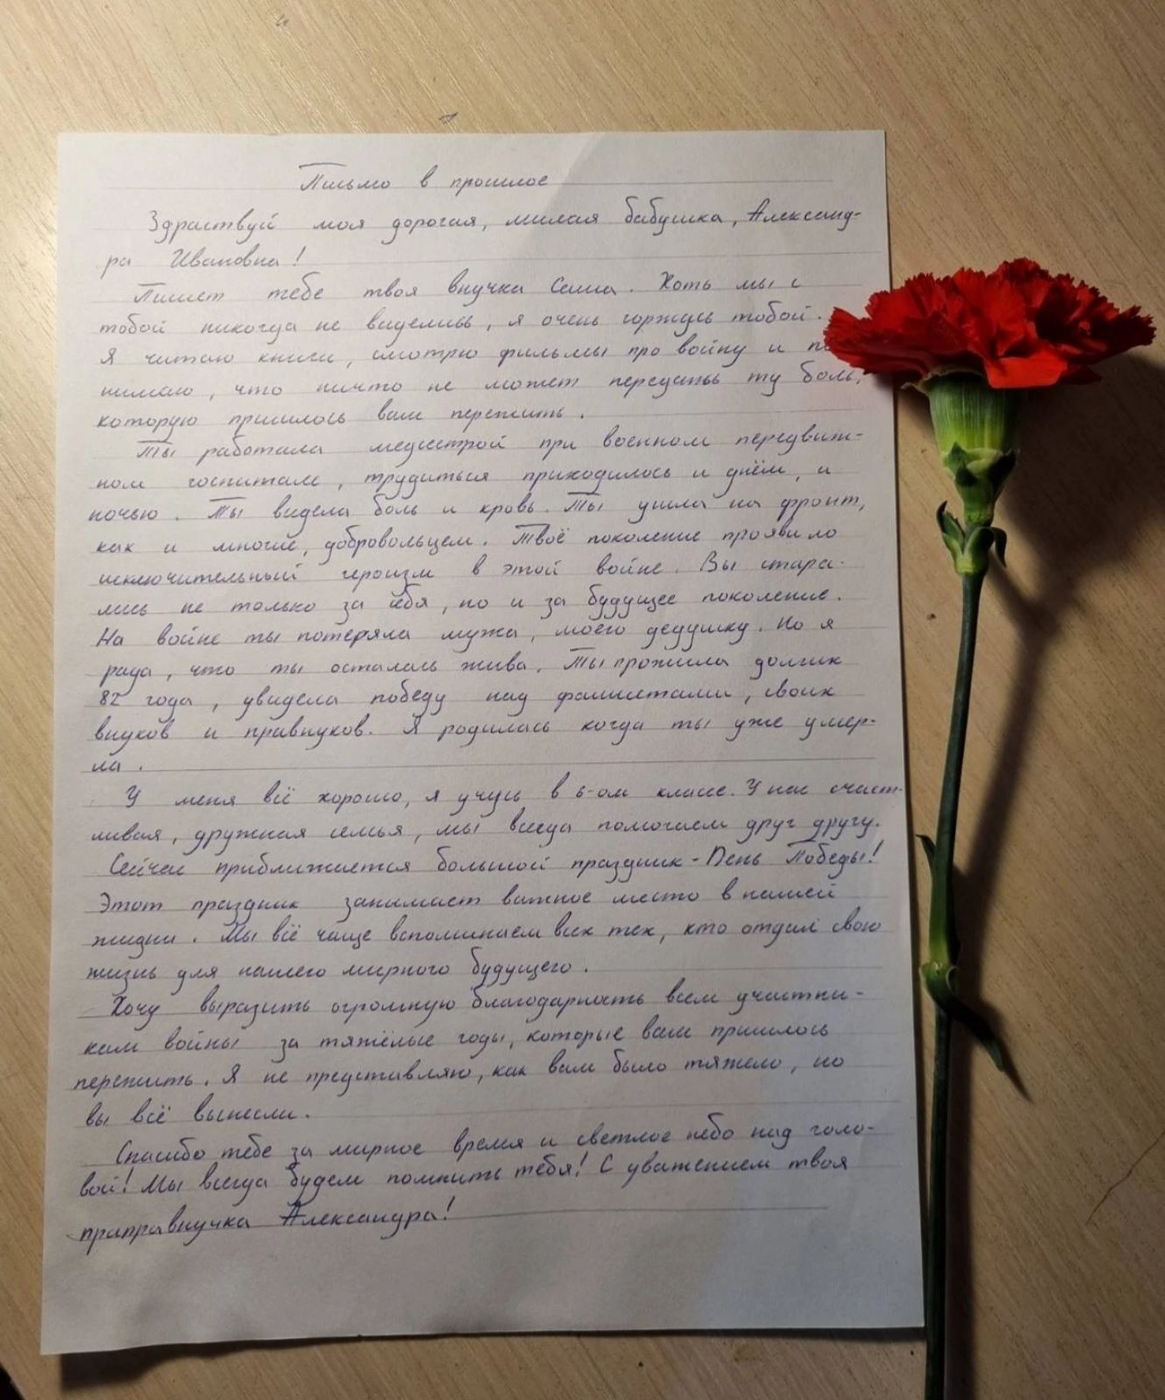 Письмо в прошлое
Здраствуй моя дорогая, милая бабушка, Александ-
ра Ивановна!
Пишет тебе твоя внучка Саша. Хоть мы с
тобой никогда не виделись, я очень горжусь тобой.
Я читаю книги, смотрю фильмы про войну и
нимаю, что ничто не может передать ту боль,
которую пришлось вам пережить.
Ты работала медсестрой при военном передвиж-
ном госпитале, трудиться приходилось и днём, и
ночью. Ты видела боль и кровь. Ты ушла на фронт,
как и многие, добровольцем. Твоё поколение проявило
исключительный героизм в этой войне. Вы стара-
лись не только за себя, но и за будущее поколение.
На войне ты потеряла мужа, моего дедушку. Но я
рада, что ты осталась жива. Ты прожила долгих
82 года, увидела победу над фашистами, своих
внуков и правнуков. Я родилась когда ты уже умер-
ла.
У меня всё хорошо, я учусь в 6-ом классе. У нас счаст-
ливая, дружная семья, мы всегда помогаем друг другу.
Сейчас приближается большой праздник - День Победы!
Этот праздник занимает важное место в нашей
жизни. Мы всё чаще вспоминаем всех тех, кто отдал свою
жизнь для нашего мирного будущего.
Хочу выразить огромную благодарность всем участни-
кам войны за тяжёлые годы, которые вам пришлось
пережить. Я не представляю, как вам было тяжело, но
вы всё вынесли.
Спасибо тебе за мирное время и светлое небо над голо-
вой! Мы всегда будем помнить тебя! С уважением твоя
праправнучка Александра!